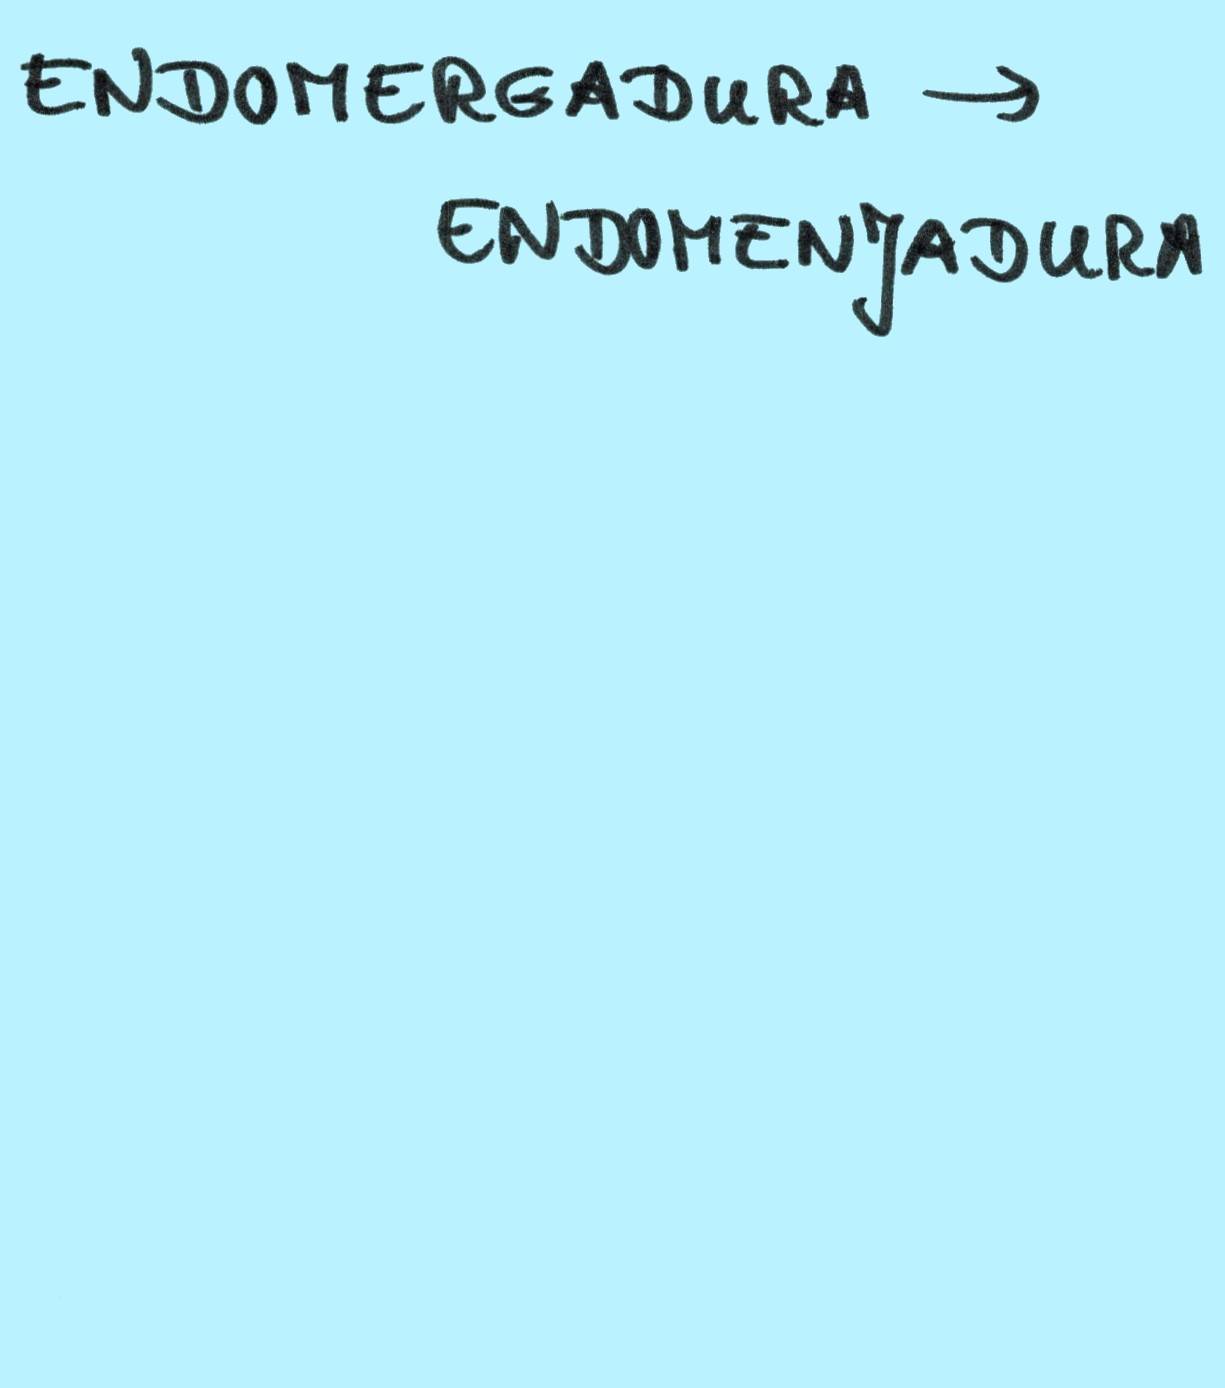 ENDOMERGADURA →
ENDOMENJADURA